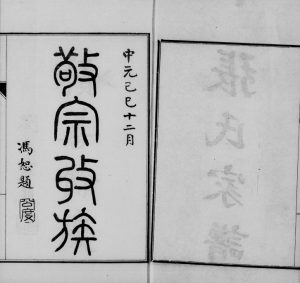 張氏家譜
中元己巳十二月
敬宗收族
馮恕題
公度